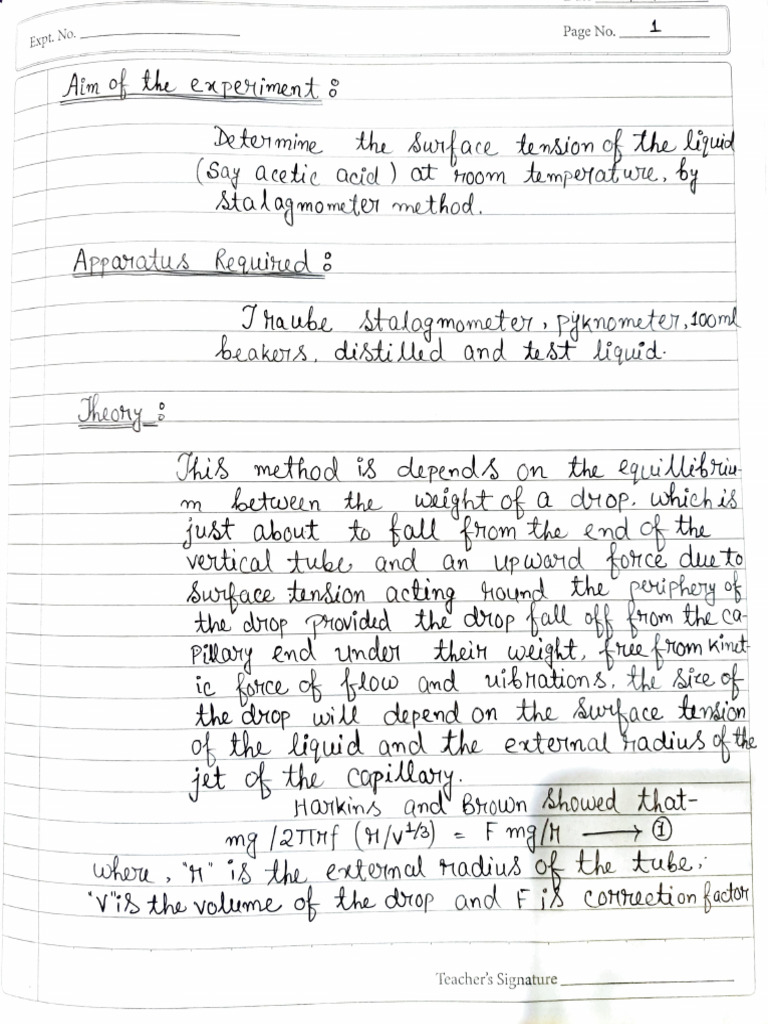 Expt. No.
Page No. 1
Aim of the experiment :
Determine the surface tension of the liquid
(Say acetic acid) at room temperature, by
Stalagmometer method.
Apparatus Required :
Traube stalagmometer, pyknometer, 100ml
beakers, distilled and test liquid.
Theory :
This method is depends on the equillibriu-
m between the weight of a drop. which is
just about to fall from the end of the
vertical tube and an upward force due to
surface tension acting round the periphery of
the drop provided the drop fall off from the ca-
pillary end under their weight, free from kinet-
ic force of flow and vibrations. the size of
the drop will depend on the surface tension
of the liquid and the external radius of the
jet of the capillary.
Harkins and Brown showed that-
mg /2πrf (r/v^1/3) = F mg/r ⟶ ①
where, "r" is the external radius of the tube,
"V" is the volume of the drop and F is correction factor
Teacher's Signature